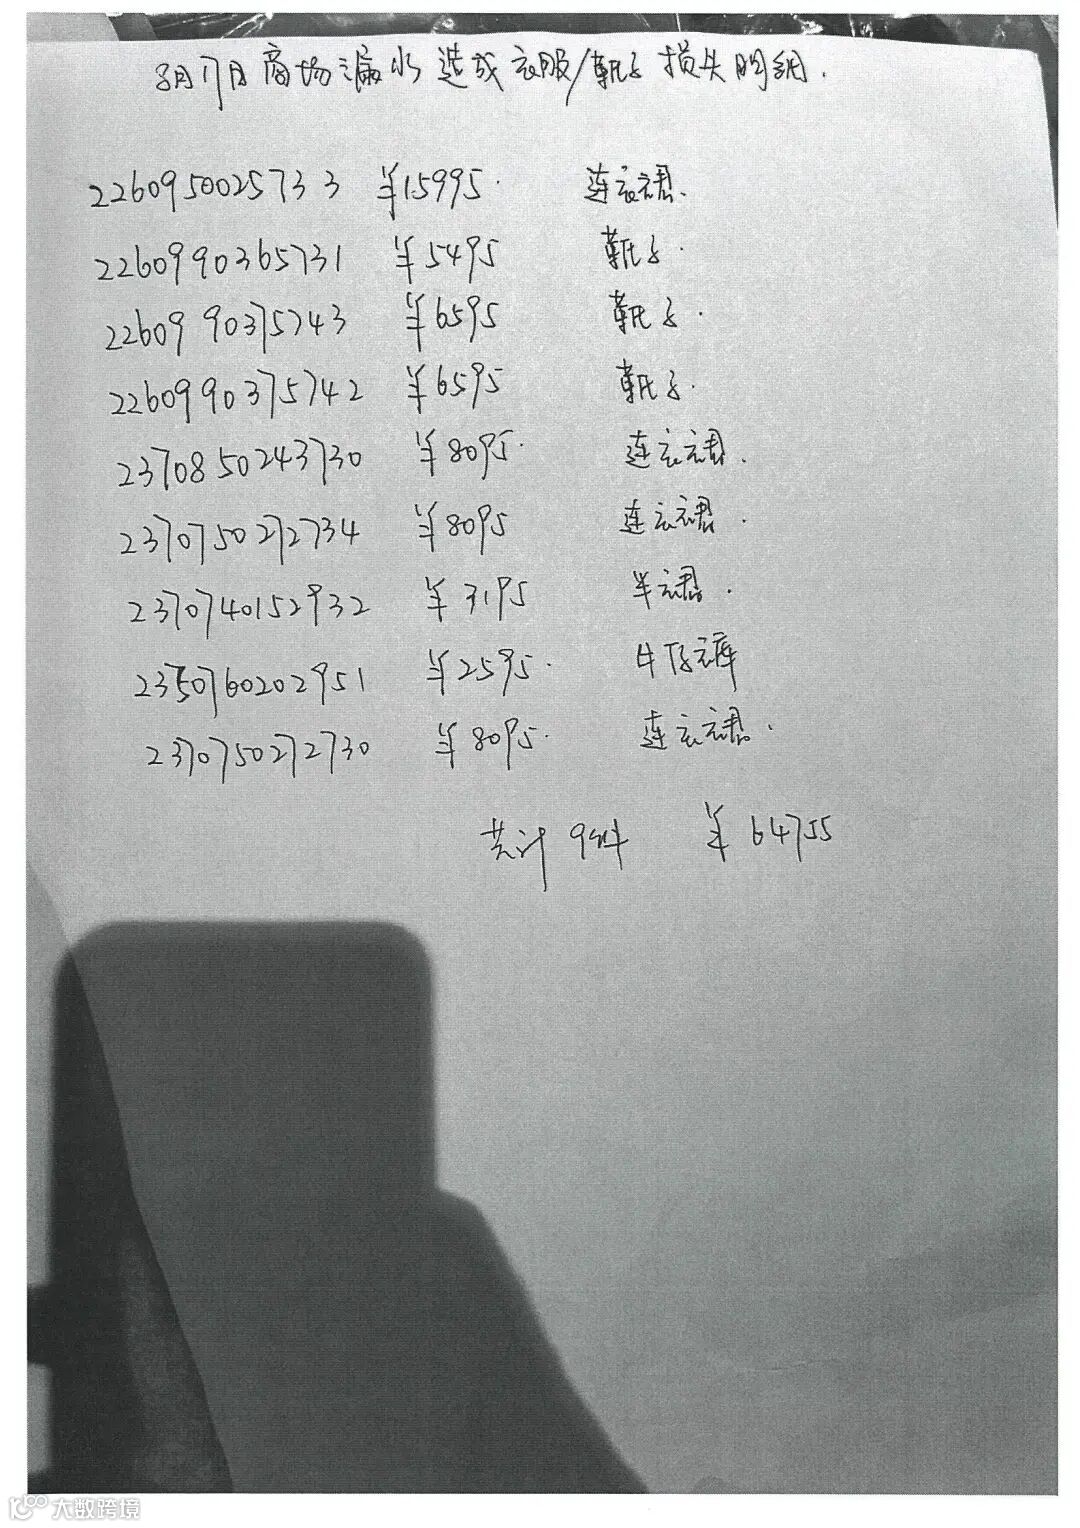 8月17日商场漏水造成衣服/靴子损失明细.
2260950025733 ¥15995. 连衣裙.
2260990365731 ¥5495 靴子.
2260990375743 ¥6595 靴子.
2260990375742 ¥6595 靴子.
2370850243730 ¥8095. 连衣裙.
2370750272734 ¥8095 连衣裙.
2370740152932 ¥3195 半裙.
2350760202951 ¥2595. 牛仔裤
2370750272730 ¥8095. 连衣裙.
共计 9件 ¥64755
大数跨境